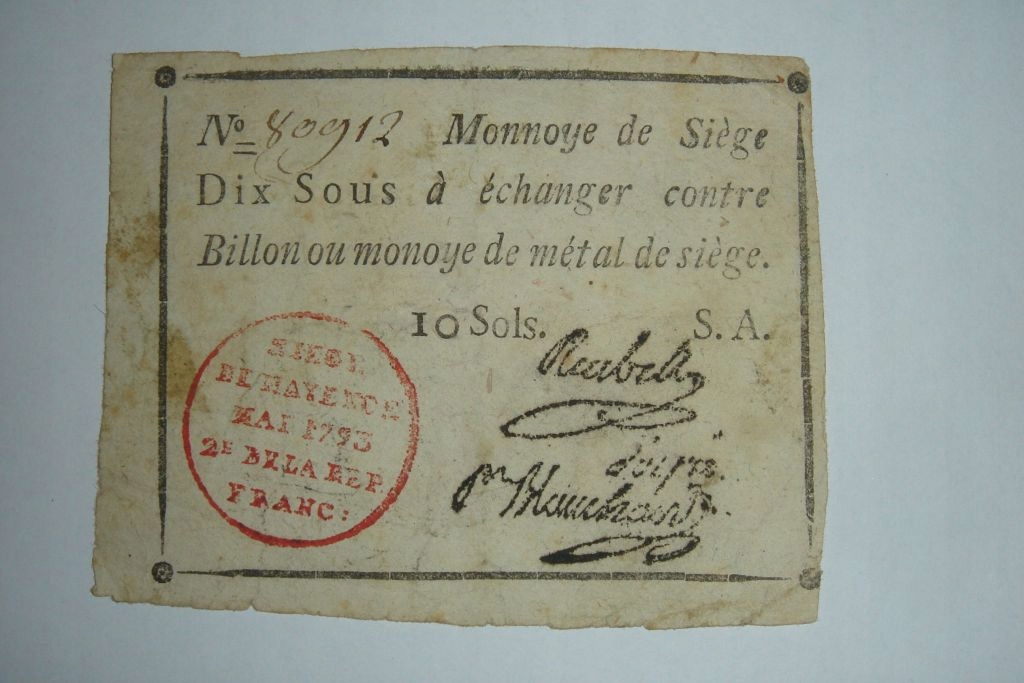 No 80912 Monnoye de Siège
Dix Sous à échanger contre
Billon ou monoye de métal de siège.
10 Sols. S. A.
SIEGE
DE MAYENCE
MAI 1793
2E DE LA REP
FRANC:
Reubell